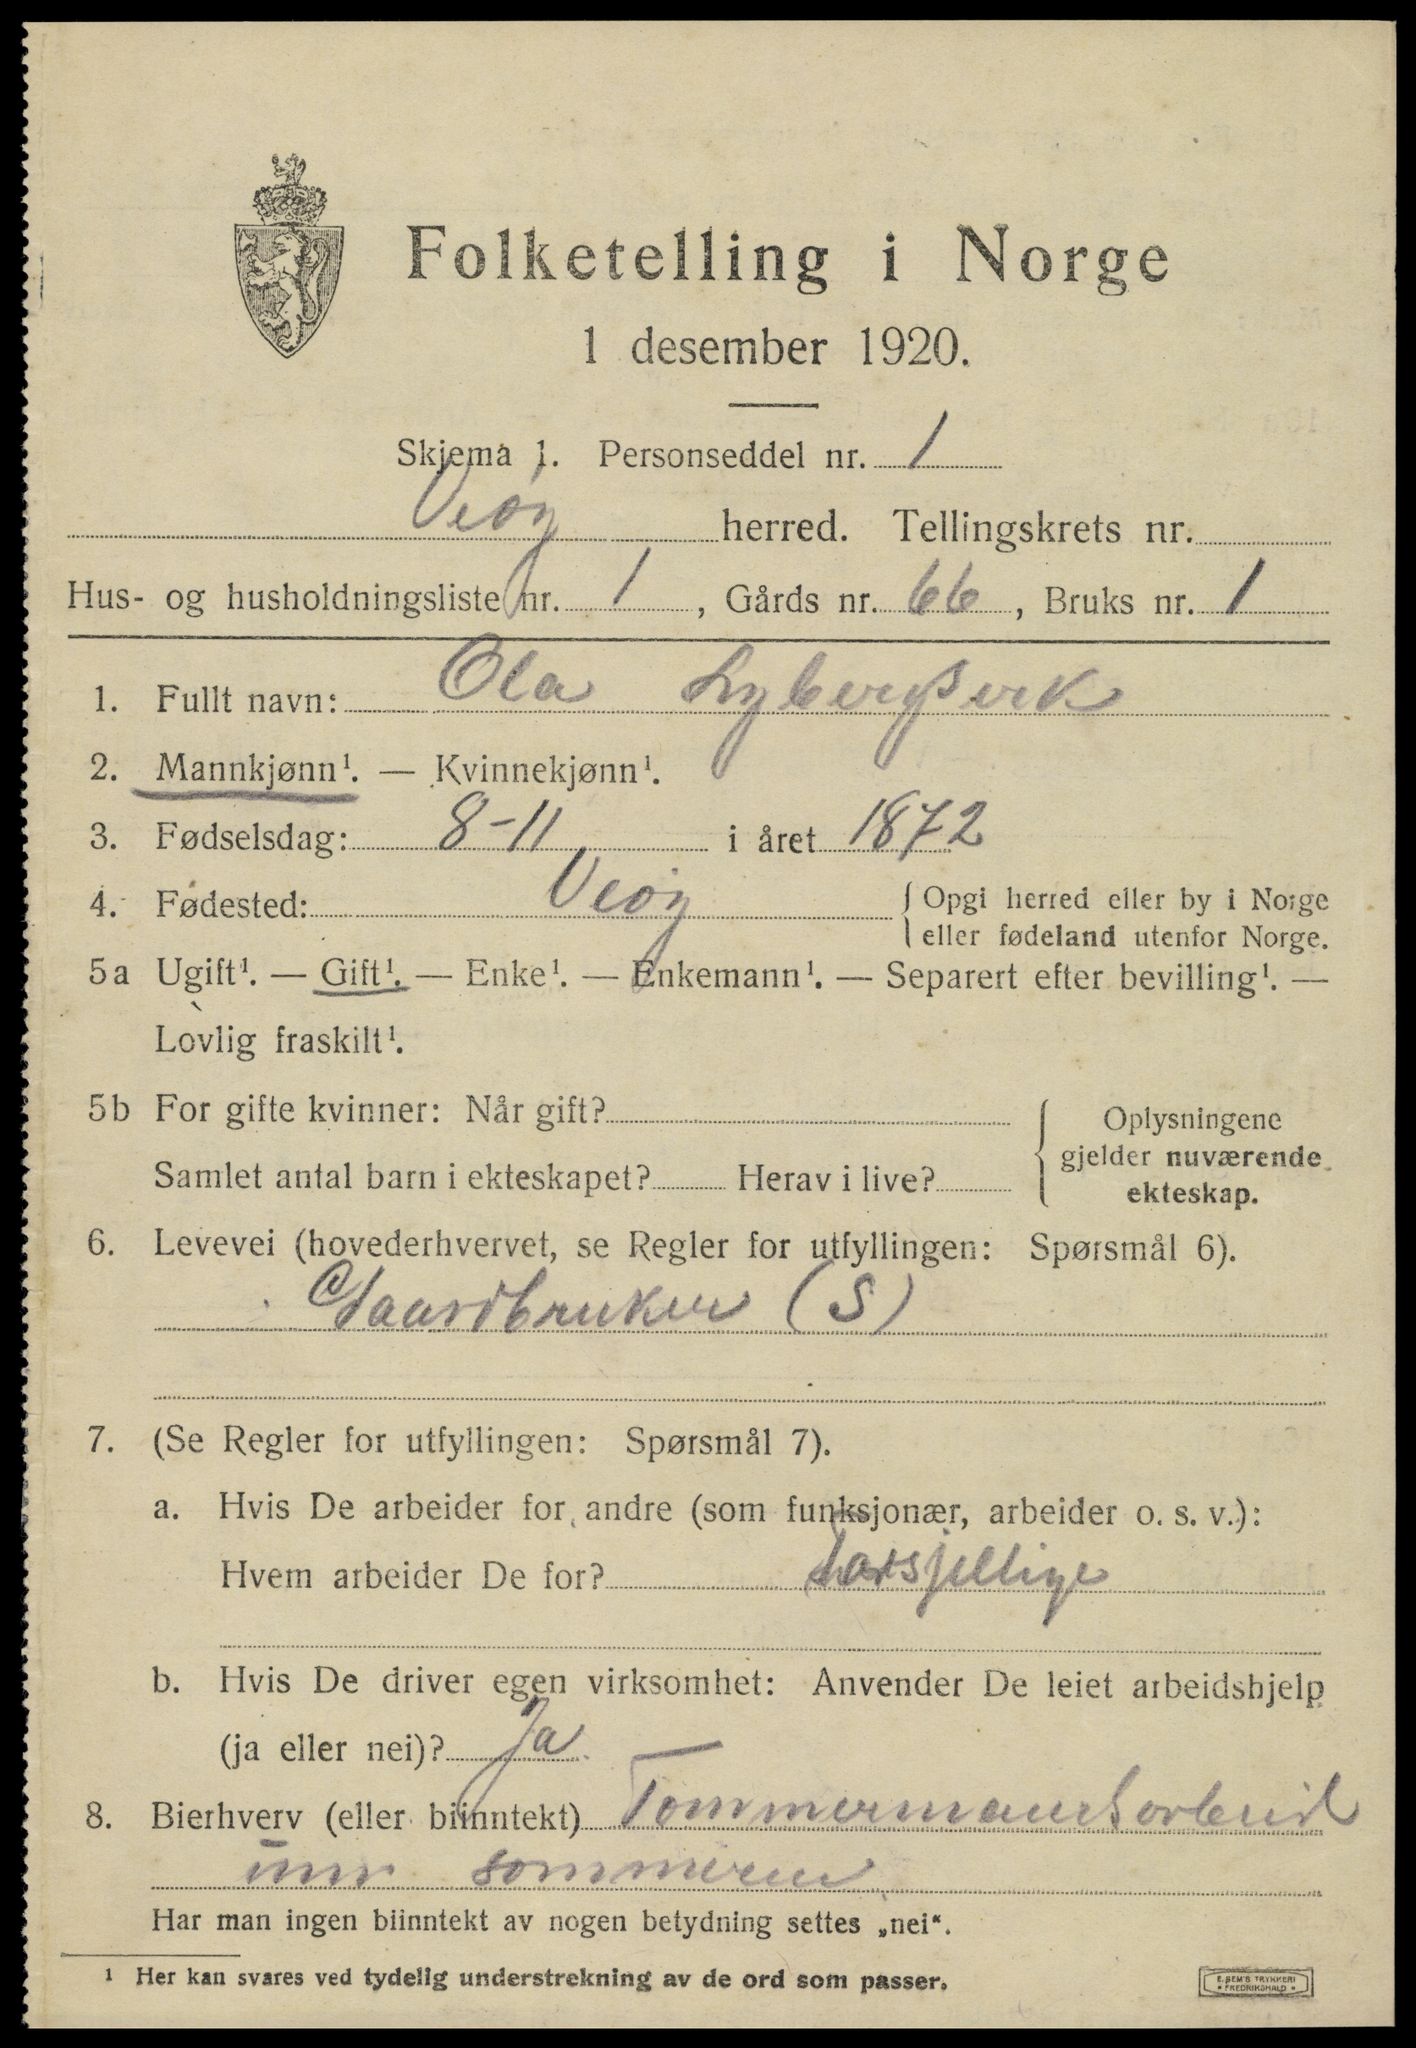 Folketelling i Norge
1 desember 1920.
Skjema 1. Personseddel nr. 1
Veøy herred. Tellingskrets nr.
Hus- og husholdningsliste nr. 1, Gårds nr. 66, Bruks nr. 1
1. Fullt navn: Ola
2. Mannkjønn¹. — Kvinnekjønn¹.
3. Fødselsdag: 8-11 i året 1872
4. Fødested: Veøy { Opgi herred eller by i Norge
eller fødeland utenfor Norge.
5a Ugift¹. — Gift¹. — Enke¹. — Enkemann¹. — Separert efter bevilling¹. —
Lovlig fraskilt¹.
5b For gifte kvinner: Når gift? { Oplysningene
gjelder nuværende
Samlet antal barn i ekteskapet? Herav i live? ekteskap.
6. Levevei (hovederhvervet, se Regler for utfyllingen: Spørsmål 6).
Gaardbruker (S)
7. (Se Regler for utfyllingen: Spørsmål 7).
a. Hvis De arbeider for andre (som funksjonær, arbeider o. s. v.):
Hvem arbeider De for? forsjellige
b. Hvis De driver egen virksomhet: Anvender De leiet arbeidshjelp
(ja eller nei)? Ja
8. Bierhverv (eller biinntekt) Tømmermandsarbeid
um sommeren
Har man ingen biinntekt av nogen betydning settes „nei“.
¹ Her kan svares ved tydelig understrekning av de ord som passer.
E. SEM'S TRYKKERI
• FREDRIKSHALD •